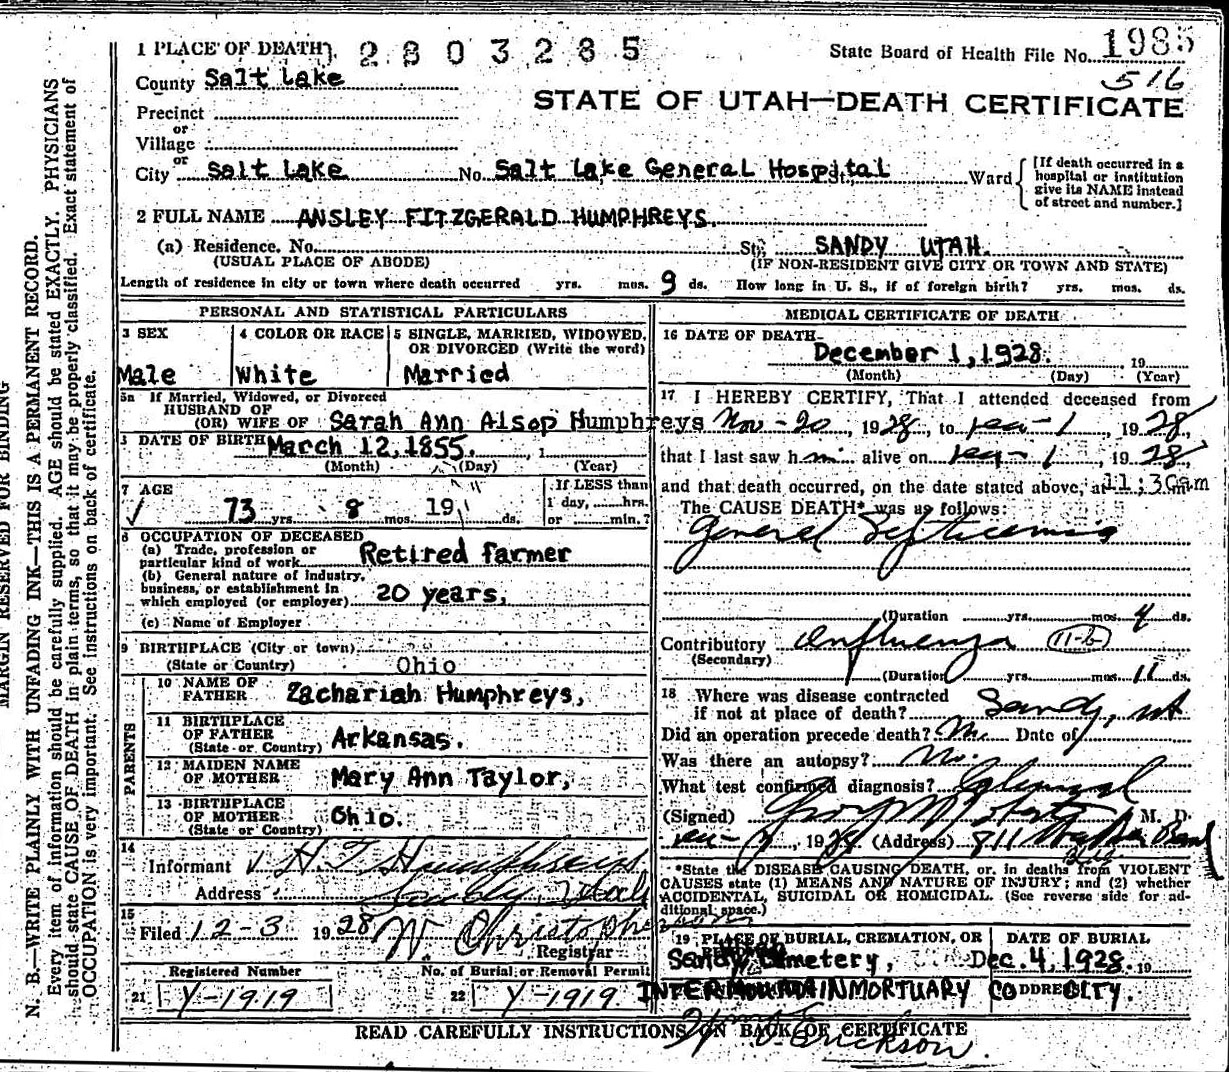 1 PLACE OF DEATH
2803285
State Board of Health File No. 1985
516
County Salt Lake
STATE OF UTAH—DEATH CERTIFICATE
Precinct
or
Village
or
City Salt Lake No. Salt Lake General Hospital Ward
[If death occurred in a hospital or institution give its NAME instead of street and number.]
2 FULL NAME ANSLEY FITZGERALD HUMPHREYS.
(a) Residence. No. St., SANDY UTAH.
(USUAL PLACE OF ABODE) (IF NON-RESIDENT GIVE CITY OR TOWN AND STATE)
Length of residence in city or town where death occurred yrs. mos. 9 ds. How long in U. S., if of foreign birth? yrs. mos. ds.
PERSONAL AND STATISTICAL PARTICULARS
3 SEX
Male
4 COLOR OR RACE
White
5 SINGLE, MARRIED, WIDOWED, OR DIVORCED (Write the word)
Married
5a If Married, Widowed, or Divorced
HUSBAND OF
(OR) WIFE OF Sarah Ann Alsop Humphreys
DATE OF BIRTH March 12, 1855. , 1
(Month) (Day) (Year)
7 AGE
73 yrs. 8 mos. 19 ds.
If LESS than
1 day, hrs.
or min.?
8 OCCUPATION OF DECEASED
(a) Trade, profession or
particular kind of work Retired farmer
(b) General nature of industry,
business, or establishment in
which employed (or employer) 20 years,
(c) Name of Employer
9 BIRTHPLACE (City or town)
(State or Country) Ohio
PARENTS
10 NAME OF
FATHER Zachariah Humphreys,
11 BIRTHPLACE
OF FATHER
(State or Country) Arkansas.
12 MAIDEN NAME
OF MOTHER Mary Ann Taylor,
13 BIRTHPLACE
OF MOTHER
(State or Country) Ohio.
14
Informant H T Humphreys
Address Sandy Utah
15
Filed 12-3 1928 W Christopherson
Registrar
Registered Number
21 Y-1919
No. of Burial or Removal Permit
22 Y-1919
MEDICAL CERTIFICATE OF DEATH
16 DATE OF DEATH
December 1, 1928. 19
(Month) (Day) (Year)
17 I HEREBY CERTIFY, That I attended deceased from
Nov-20, 1928, to 1, 1928,
that I last saw him alive on 1, 1928,
and that death occurred, on the date stated above, at 11:30am
The CAUSE DEATH* was as follows:
General Septicemia
(Duration yrs. mos. 4 ds.
Contributory Influenza 11-b
(Secondary)
(Duration yrs. mos. 11 ds.
18 Where was disease contracted
if not at place of death? Sandy, Ut
Did an operation precede death? No. Date of
Was there an autopsy? No.
What test confirmed diagnosis?
(Signed) M. D.
, 1928 (Address) 811 Bank
Bldg.
*State the DISEASE CAUSING DEATH, or, in deaths from VIOLENT
CAUSES state (1) MEANS AND NATURE OF INJURY; and (2) whether
ACCIDENTAL, SUICIDAL OR HOMICIDAL. (See reverse side for ad-
ditional space.)
19 PLACE OF BURIAL, CREMATION, OR
DATE OF BURIAL
Sandy Cemetery, Dec. 4, 1928. 19
INTERMOUNTAIN MORTUARY CO ADDRESS CITY.
Erickson.
READ CAREFULLY INSTRUCTIONS ON BACK OF CERTIFICATE
MARGIN RESERVED FOR BINDING
N. B.—WRITE PLAINLY WITH UNFADING INK—THIS IS A PERMANENT RECORD.
Every item of information should be carefully supplied. AGE should be stated EXACTLY. PHYSICIANS
should state CAUSE OF DEATH in plain terms, so that it may be properly classified. Exact statement of
OCCUPATION is very important. See instructions on back of certificate.